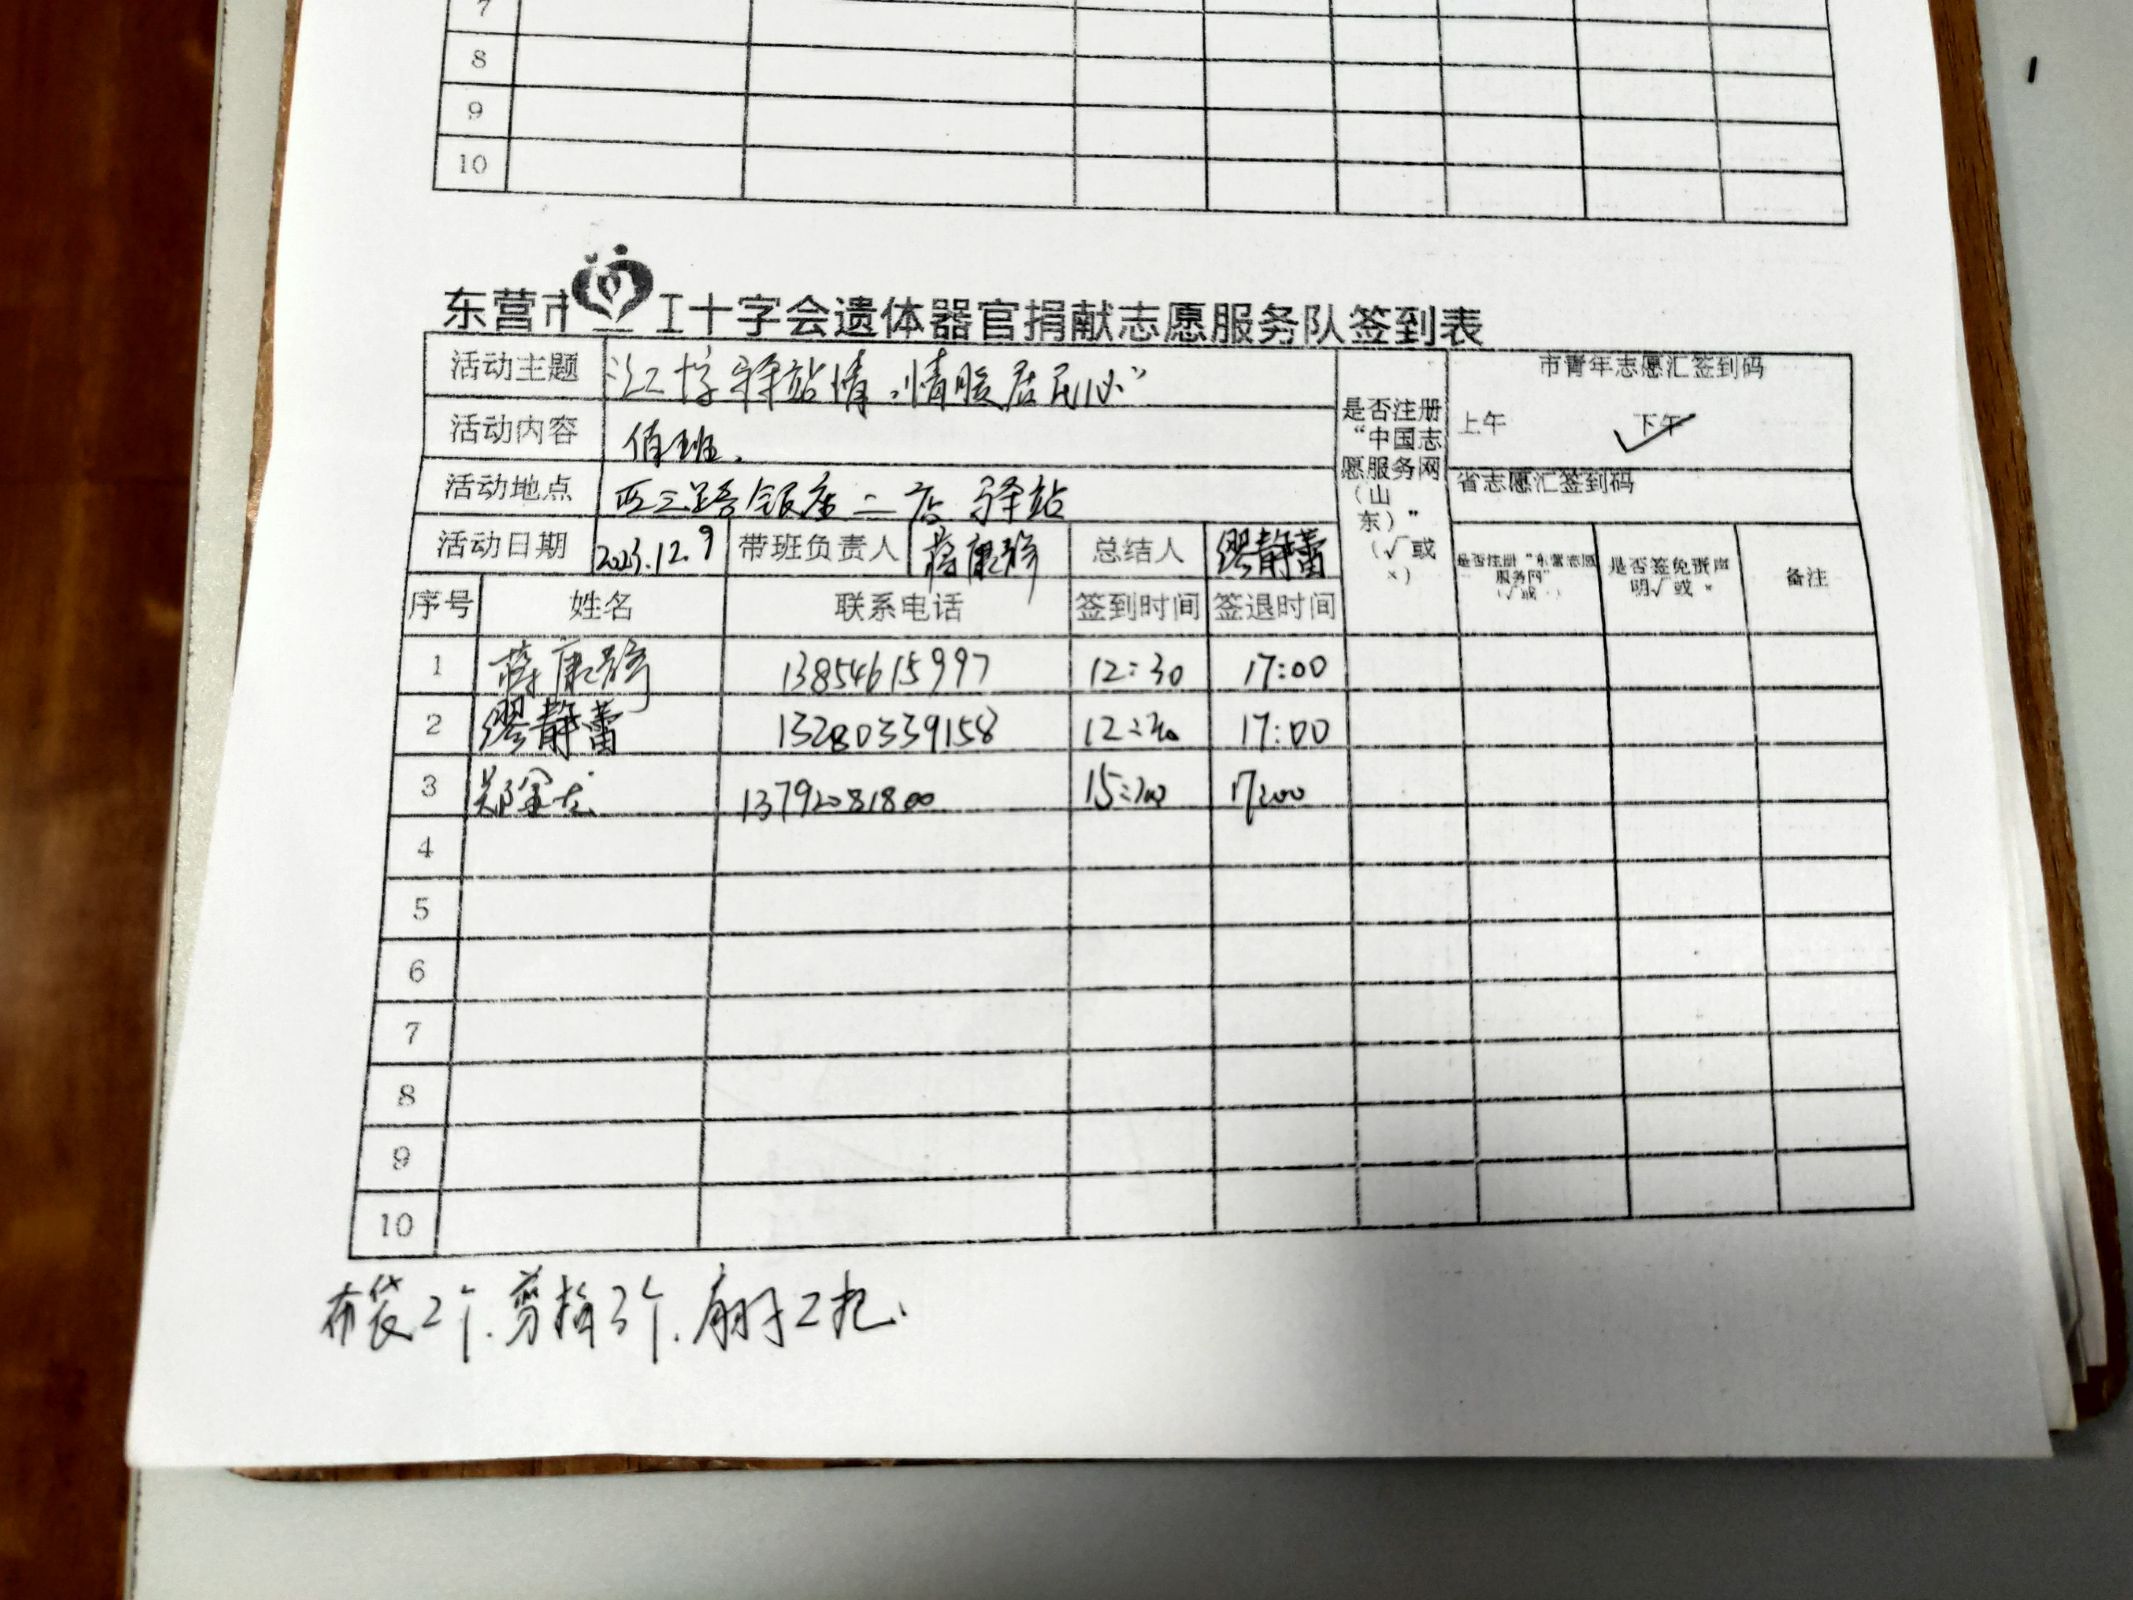 7
8
9
10
东营市 工十字会遗体器官捐献志愿服务队签到表
活动主题 红十字驿站情，情暖居民心”
活动内容 值班.
活动地点 西三路银座二店驿站
活动日期 2023.12.9 带班负责人 总结人 缪静蕾
是否注册“中国志愿服务网（山东）”（√或×）
市青年志愿汇签到码
上午 下午 ✓
省志愿汇签到码
是否注册“东营志愿服务网”（√或×） 是否签免责声明√或× 备注
序号 姓名 联系电话 签到时间 签退时间
1 13854615997 12:30 17:00
2 缪静蕾 13280339158 12:30 17:00
3 13792081800 17:00
4
5
6
7
8
9
10
布袋2个.剪指3个.扇子2把.